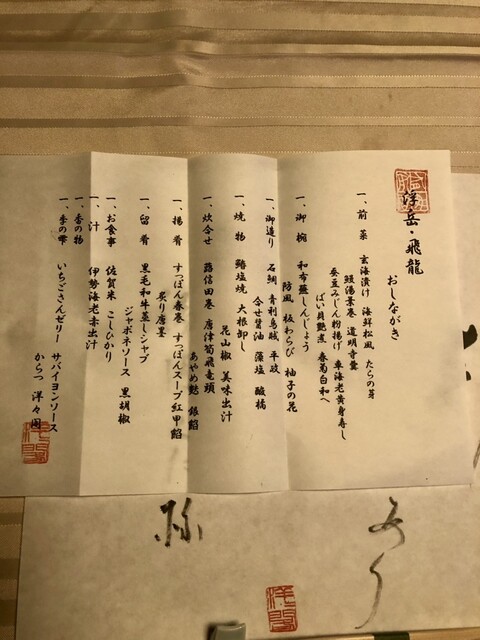 浮岳・飛龍
おしながき
一、前菜 玄海漬け 海鮮松風 たらの芽
鰻湯葉巻 道明寺羹
蚕豆みじん粉揚げ 車海老黄身寿し
ばい貝艶煮 春菊白和へ
一、御椀 和布蕪しんじょう
防風 板わらび 柚子の花
一、御造り 石鯛 青利烏賊 平政
合せ醤油 藻塩 酸橘
一、焼物 鰆塩焼 大根卸し
花山椒 美味出汁
一、炊合せ 蕗信田巻 唐津筍飛竜頭
あやめ麩 銀餡
一、揚肴 すっぽん春巻 すっぽんスープ紅甲餡
炙り唐墨
一、留肴 黒毛和牛蒸しシャブ
ジャポネソース 黒胡椒
一、お食事 佐賀米 こしひかり
一、汁 伊勢海老赤出汁
一、香の物
一、季の雫 いちごさんゼリー サバイヨンソース
からつ 洋々閣